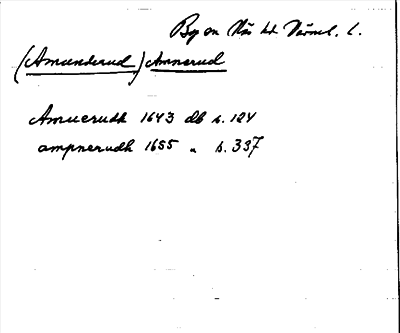 By en Näs hd Värml. l.
(Amunderud) Amnerud
Amucrudh 1643 db s. 124
ampnerudh 1655 " s. 337